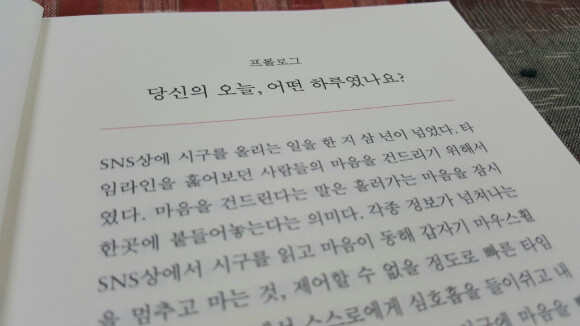 프롤로그
당신의 오늘, 어떤 하루였나요?
SNS상에 시구를 올리는 일을 한 지 삼 년이 넘었다. 타
임라인을 훑어보던 사람들의 마음을 건드리기 위해서
였다. 마음을 건드린다는 말은 흘러가는 마음을 잠시
한곳에 붙들어놓는다는 의미다. 각종 정보가 넘쳐나는
SNS상에서 시구를 읽고 마음이 동해 갑자기 마우스휠
을 멈추고 마는 것, 제어할 수 없을 정도로 빠른 타임
스스로에게 심호흡을 들이쉬고 내
시구에 마음을